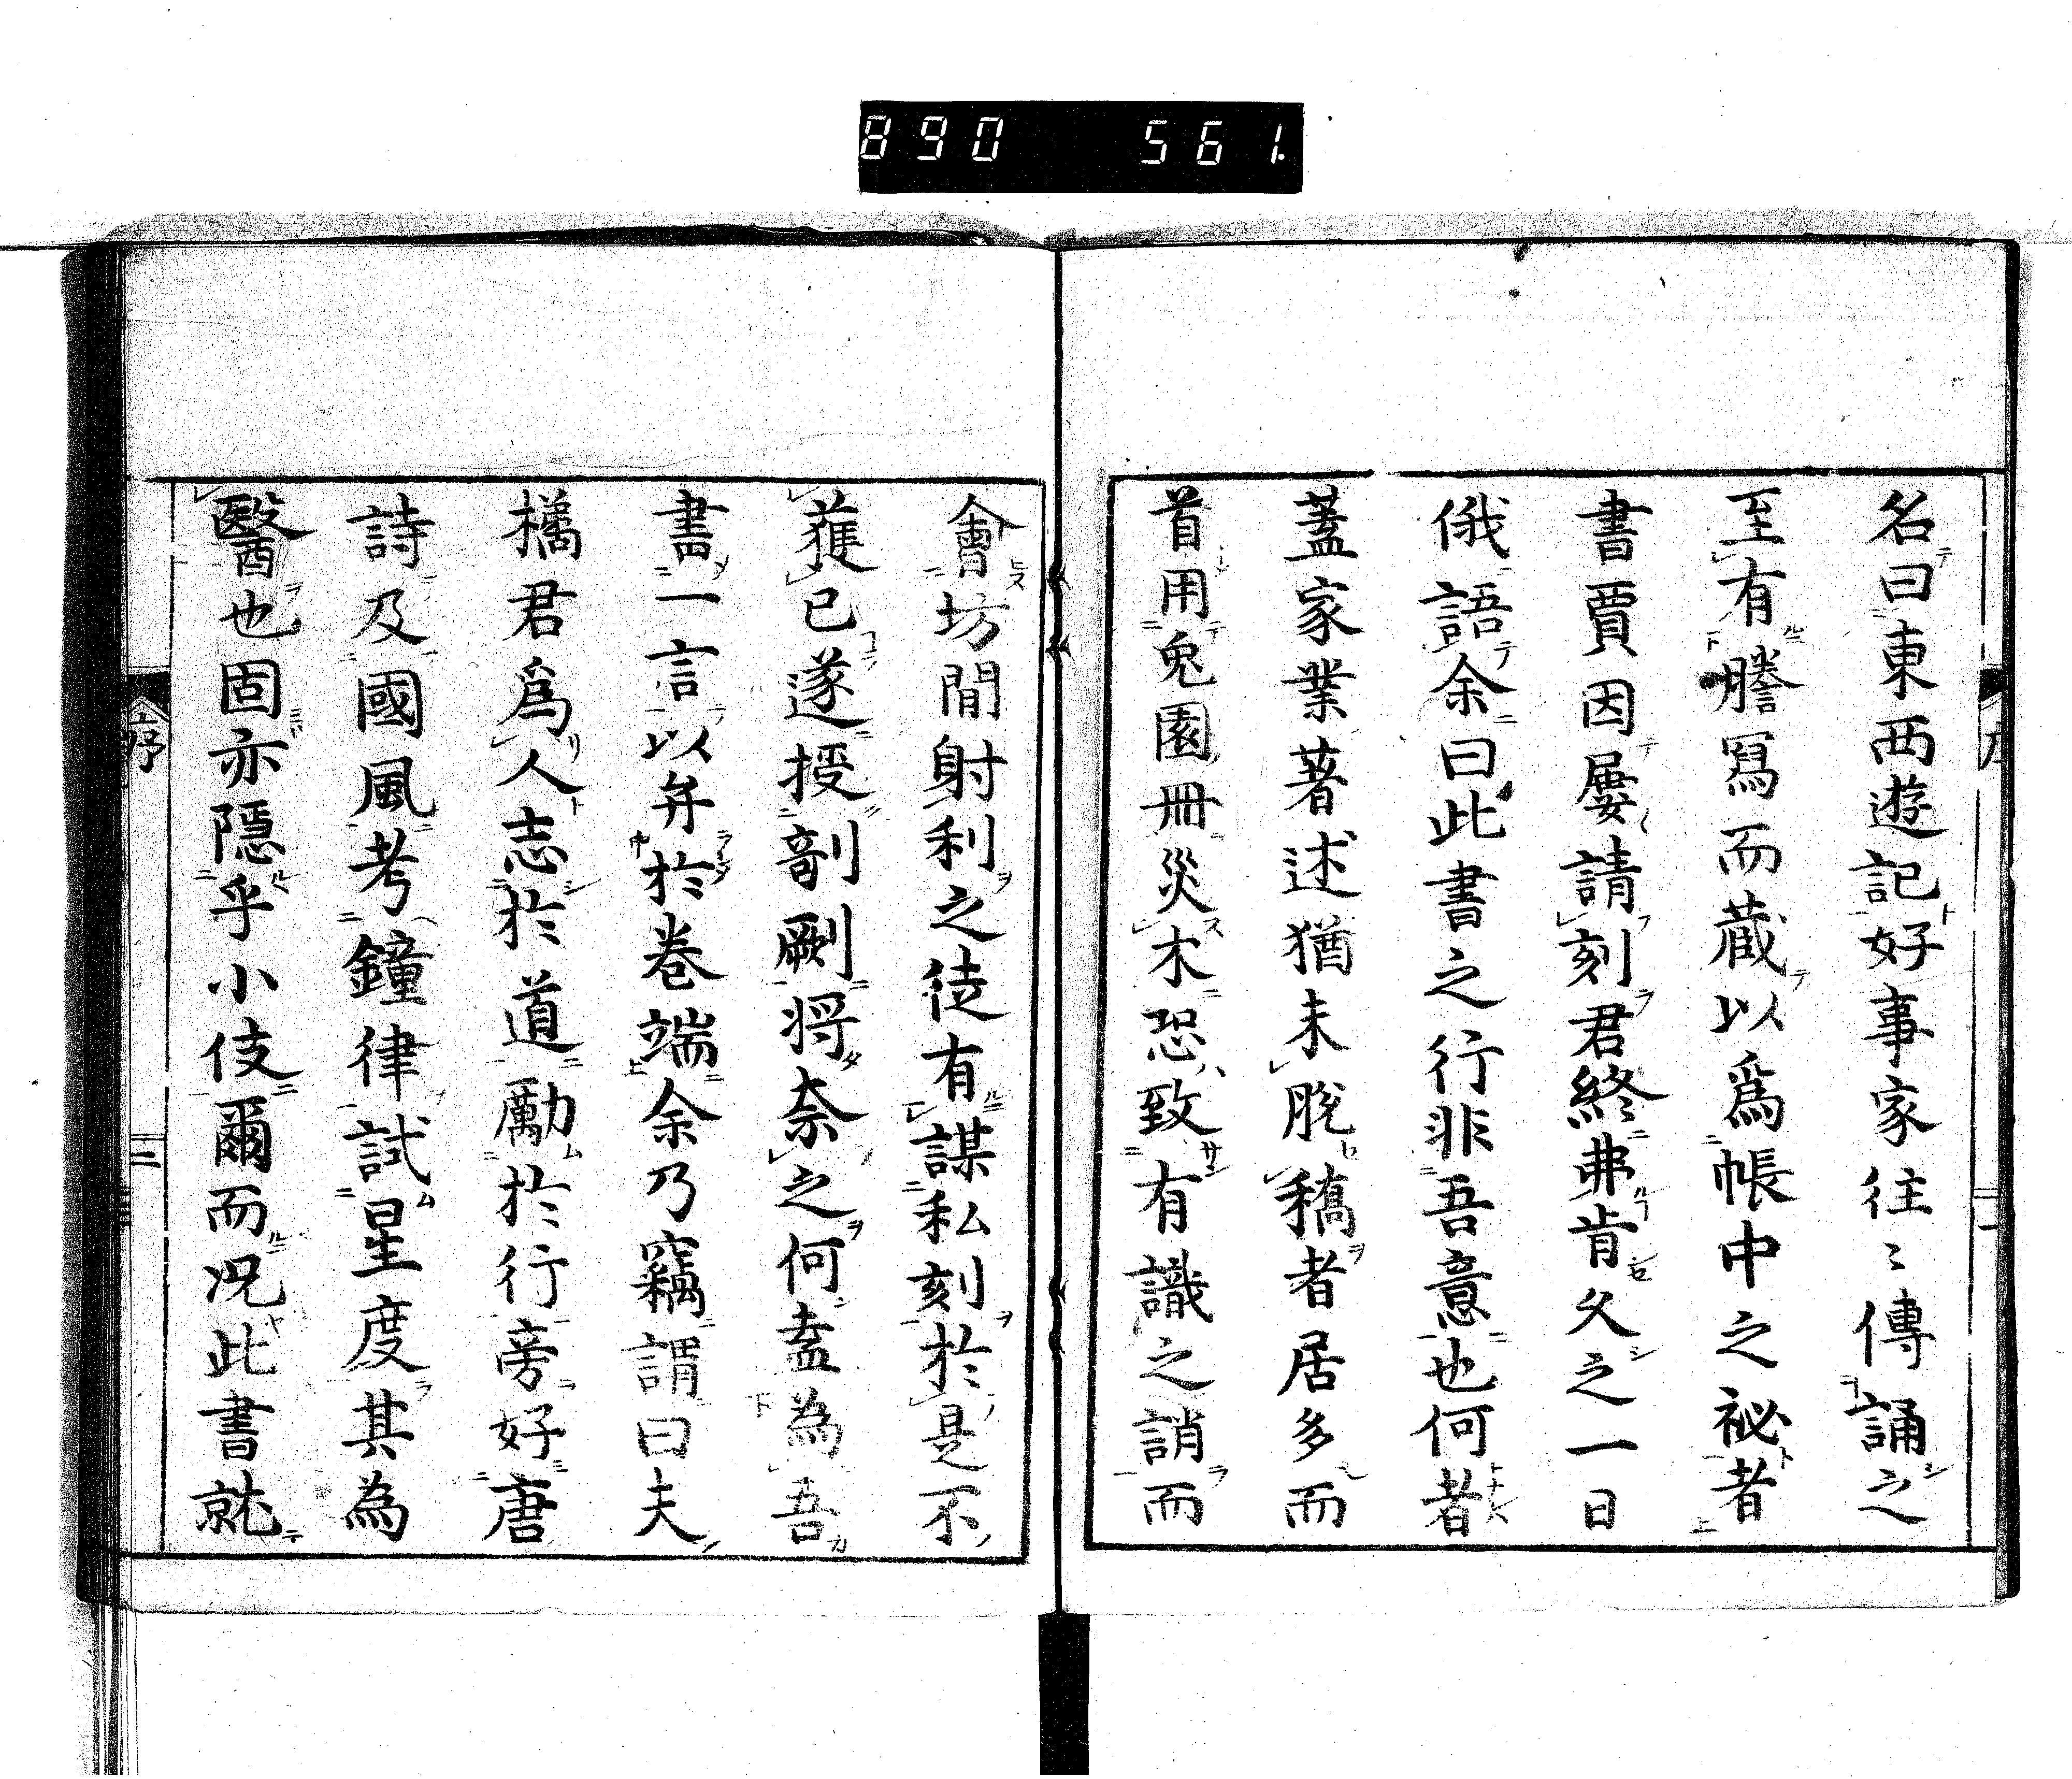 890 561.
名曰東西遊記好事家往〻傳誦之
至有謄寫而藏以爲帳中之祕者
書賈因屢請刻君終弗肯久之一日
俄語余曰此書之行非吾意也何者
蓋家業著述猶未脫稿者居多而
首用兔園冊災木恐致有識之誚而
會坊間射利之徒有謀私刻於是不
獲已遂授剞劂將奈之何盍為吾
書一言以弁於卷端余乃竊謂曰夫
橘君爲人志於道勵於行旁好唐
詩及國風考鐘律試星度其為
醫也固亦隱乎小伎爾而况此書就
序
二